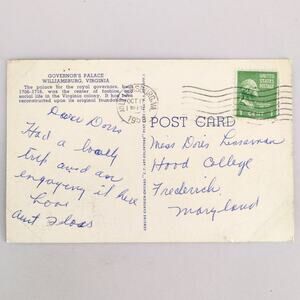 GOVERNOR'S PALACE
WILLIAMSBURG, VIRGINIA
The palace for the royal governor, built
1706-1716, was the center of fashion and
social life in the Virginia colony. It has been
reconstructed upon its original foundation.
OCT 17
UNITED STATES
1 CENT
POST CARD
Dear Doris
Had a lovely
trip and am
enjoying it here
Love
Aunt
Miss Doris
Hood College
Frederick,
Maryland